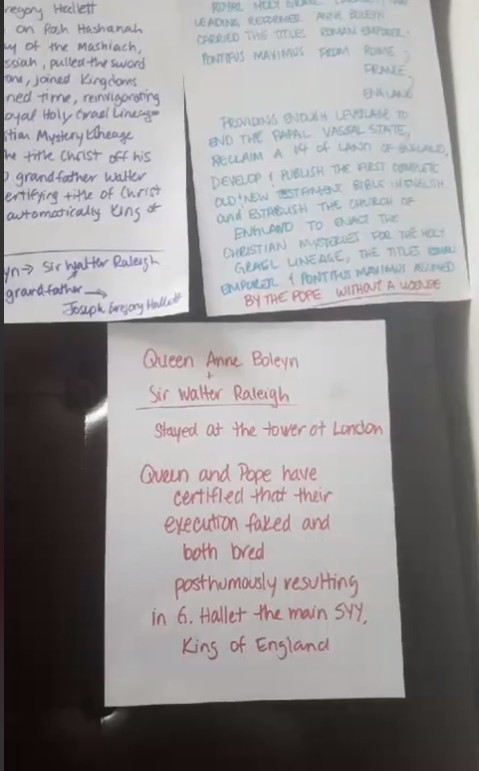 regory Hallett
on Rosh Hashanah
of the Mashiach,
ssiah, pulled the sword
one, joined Kingdoms
ned time, reinvigorating
oyal Holy Grael Lineage
stian Mystery Lineage
he title Christ off his
grandfather Walter
ertifying title of Christ
automatically King of
yn → Sir Walter Raleigh
grandfather →
Joseph Gregory Hallett
ROYAL HOLY
LEADING REFORMER ANNE BOLEYN
CARRIED THE TITLES ROMAN EMPEROR
PONTIFUS MAXIMUS FROM ROME,
FRANCE,
ENGLAND
PROVIDING ENOUGH LEVERAGE TO
END THE PAPAL VASSAL STATE,
RECLAIM A 1/4 OF LAND OF ENGLAND,
DEVELOP & PUBLISH THE FIRST COMPLETE
OLD & NEW TESTAMENT BIBLE IN ENGLISH
and ESTABLISH THE CHURCH OF
ENGLAND TO ENACT THE
CHRISTIAN MYSTERIES FOR THE HOLY
GRAEL LINEAGE, THE TITLES ROMAN
EMPORER & PONTIFUS MAXIMUS ASSUMED
BY THE POPE WITHOUT A LICENSE
Queen Anne Boleyn
+
Sir Walter Raleigh
Stayed at the tower of London
Queen and Pope have
certified that their
execution faked and
both bred
posthumously resulting
in G. Hallet the main SYY,
King of England